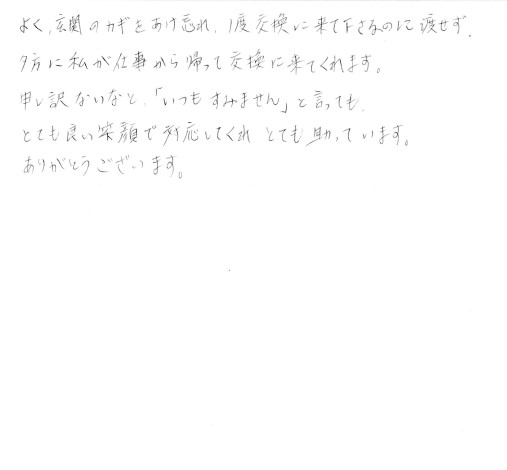 よく、玄関のカギをあけ忘れ、1度交換に来て下さるのに渡せず、
夕方に私が仕事から帰って交換に来てくれます。
申し訳ないなと、「いつもすみません」と言っても、
とても良い笑顔で対応してくれ とても助っています。
ありがとうございます。